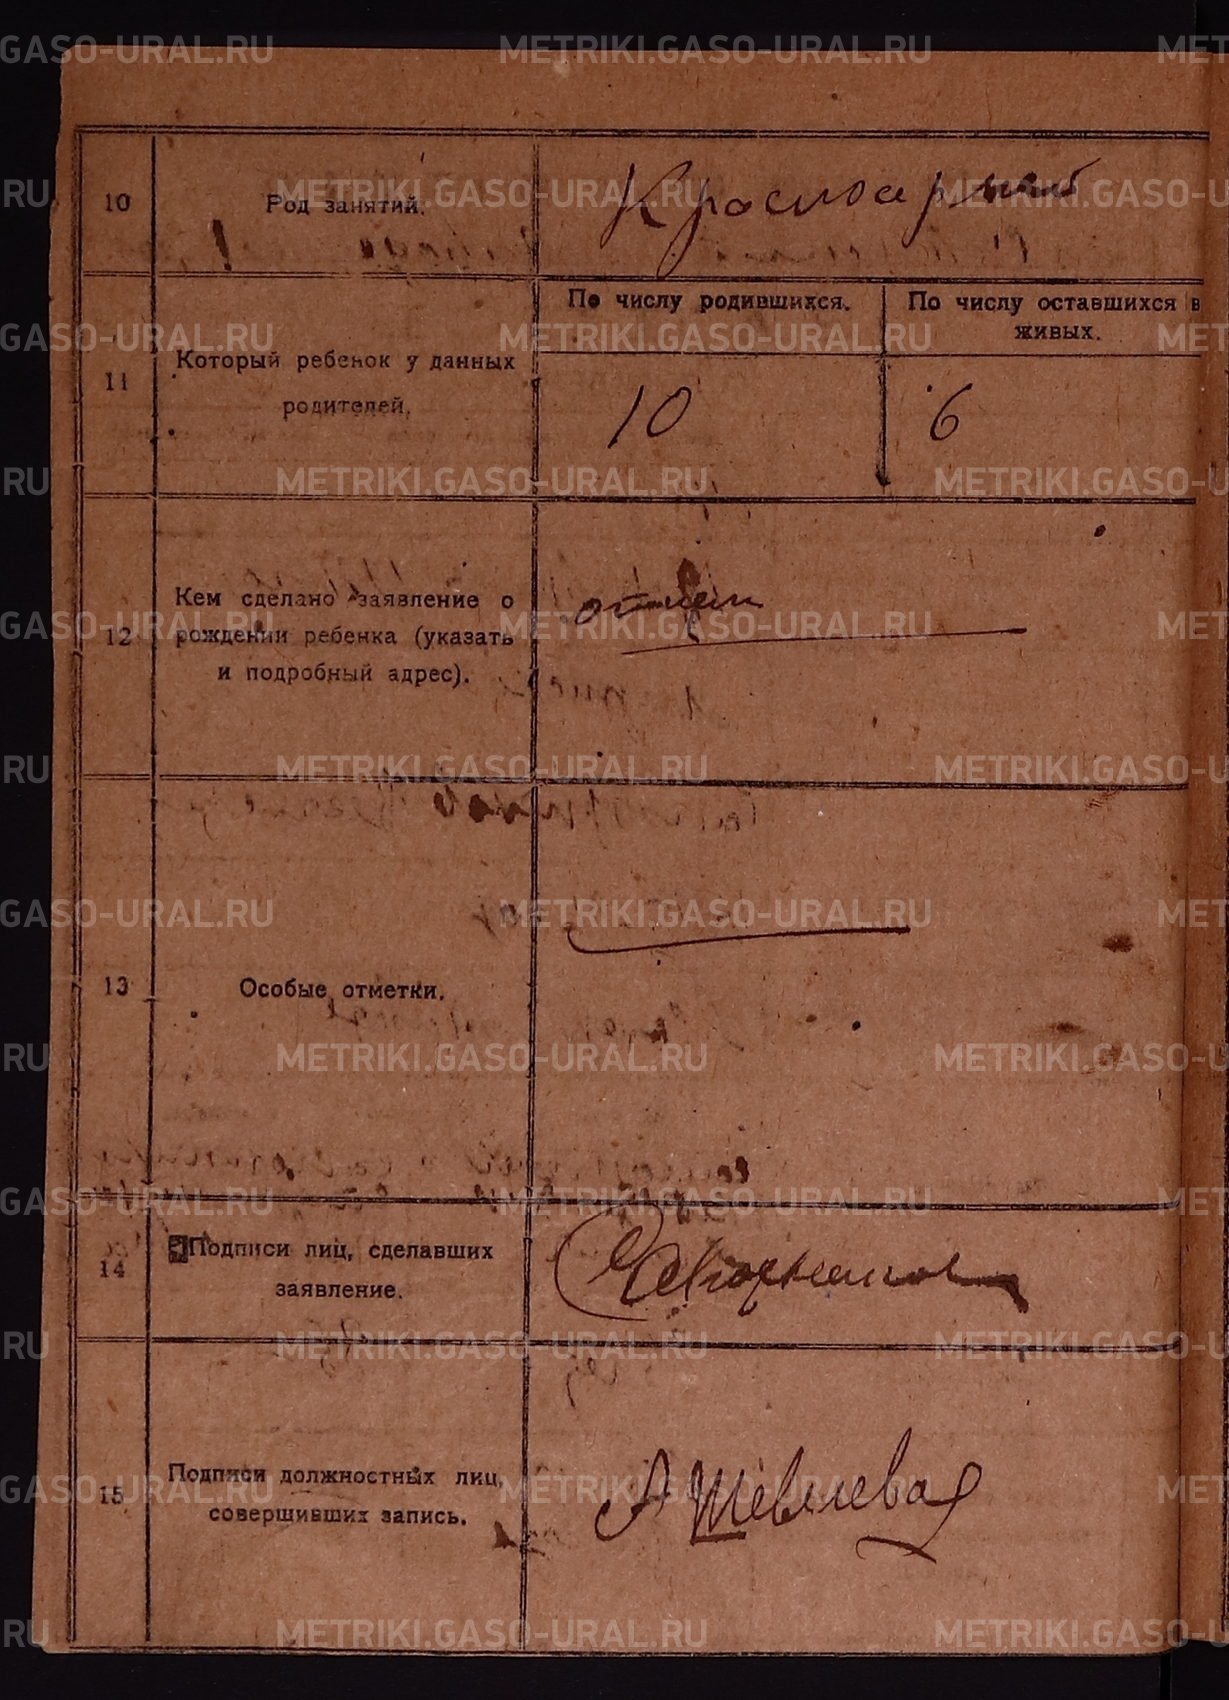 10 Род занятий. Красноармеец
11 Который ребенок у данных родителей.
По числу родившихся.
По числу оставшихся в живых.
10
6
12 Кем сделано заявление о
рождении ребенка (указать
и подробный адрес).
отцем
13 Особые отметки.
14 Подписи лиц, сделавших
заявление.
15 Подписи должностных лиц,
совершивших запись.
А Шевелева
METRIKI.GASO-URAL.RU